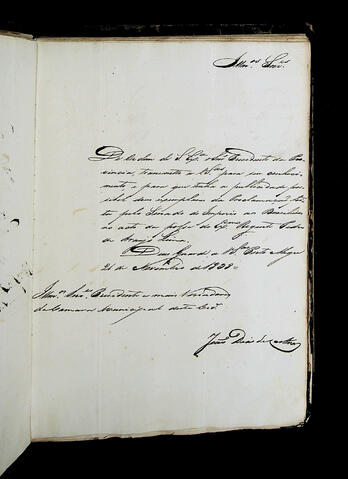 Illm.os Snr.es
De ordem de S. Ex.ª o Sr. Presidente da Pro-
vincia, transmitto a V.S.as para seu conheci-
mento e para que tenha a publicidade pos-
sivel dois exemplares da Proclamação fei-
ta pelo Senado do Imperio aos Brasileiros
no acto da posse do Ex.mo Regente Pedro
de Araujo Lima.
Deus Guarde a V.S.as Porto Alegre
21 de Novembro de
Illm.os Snr.es Presidente e mais Vereadores
da Camara Municipal desta Cid.e
João Dias de Castro